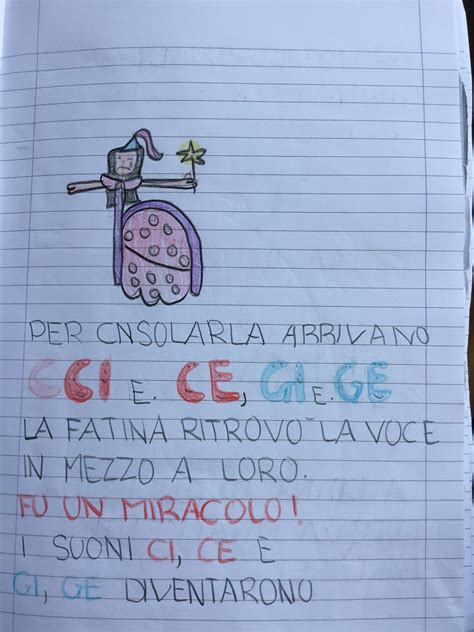 PER CNSOLARLA ARRIVANO
CCI E. CE, GI E. GE
LA FATINA RITROVO` LA VOCE
IN MEZZO A LORO.
FU UN MIRACOLO!
I SUONI CI, CE E
GI, GE DIVENTARONO